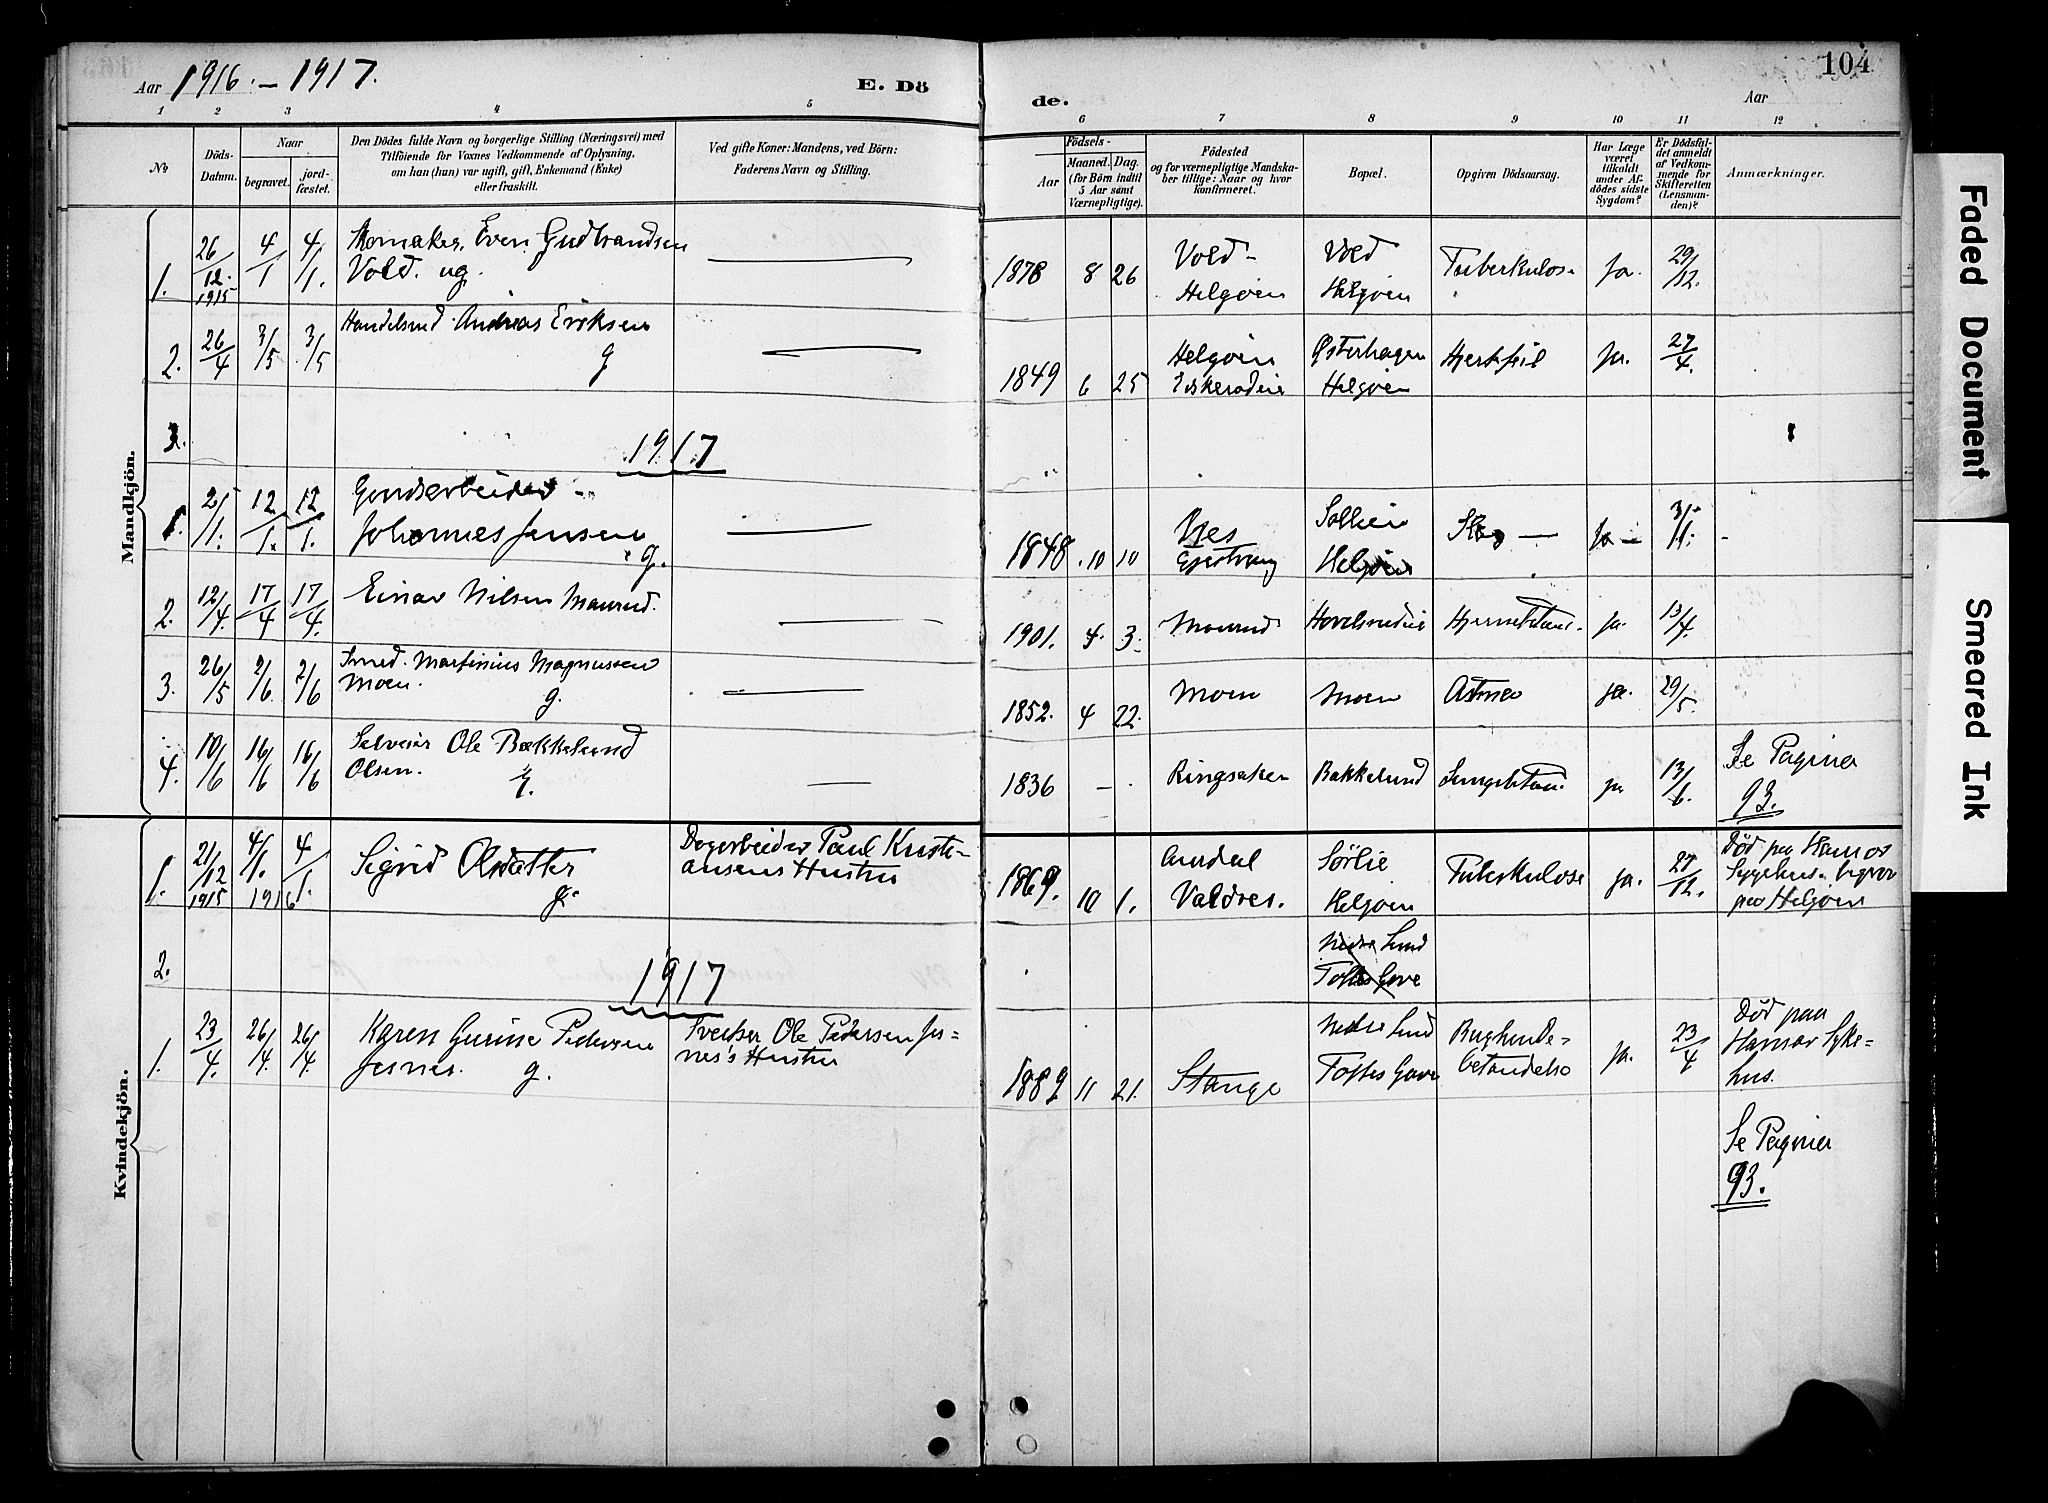 Aar 1916. – 1917.
E. Dö
de.
Aar
104
1 2 3 4 5 6 7 8 9 10 11 12
No
Döds-
Datum.
Naar
begravet.
jord-
fæstet.
Den Dödes fulde Navn og borgerlige Stilling (Næringsvei) med
Tilföiende for Voxnes Vedkommende af Oplysning,
om han (hun) var ugift, gift, Enkemand (Enke)
eller fraskilt.
Ved gifte Koner: Mandens, ved Börn:
Faderens Navn og Stilling.
Födsels-
Aar
Maaned. Dag.
(for Börn indtil
5 Aar samt
Værnepligtige).
Födested
og for værnepligtige Mandska-
ber tillige: Naar og hvor
konfirmeret.
Bopæl.
Opgiven Dödsaarsag.
Har Læge
været
tilkaldt
under Af-
dödes sidste
Sygdom?
Er Dödsfal-
det anmeldt
af Vedkom-
mende for
Skifteretten
(Lensman-
den)?
Anmærkninger.
Mandkjön.
1. 26/12. 1915 4/1 4/1. Skomaker Even Gudbrandsen
Vold. ug. — 1878 8 26 Vold-
Helgøen Vold
Helgøen Tuberkulose Ja. 29/12.
2. 26/4 3/5 3/5 Handelsmd. Andreas Eriksen
g — 1849 6 25 Helgøen
Eskerudeie Østerhagen
Helgøen Hjertefeil Ja. 27/4.
3.
1917
1. 2/1. 12/1. 12/1. Gaardsarbeider
Johannes Jensen
g. — 1848 10 10 Næs
Sollien
Helgøen Ja 3/1.
2. 12/4. 17/4 17/4. Einar Nilsen Maurud. — 1901. 4. 3. Maurud Hovelsrudeie Ja. 13/4.
3. 26/5 2/6 2/6 Smed. Martinius Magnussen
Moen. g. — 1852. 4 22. Moen Moen Astma Ja. 29/5.
4. 10/6 16/6 16/6 Selveier Ole Bækkelund
Olsen. — 1836 — Ringsaker Bakkelund Ja 13/6. Se Pagina
93.
Kvindekjön.
1. 21/12 1915 4/1. 1916 4/1. Sigrid Olsdatter
g. Dagarbeider Paul Kristi-
ansens Hustru 1869. 10 1. Aurdal
Valdres. Sørlie
Helgøen Tuberkulose Ja. 27/12. Død paa Hamar
Sygehus. begrav
paa Helgøen
2. Nedre Lund
Toftes Gave
1917
1. 23/4. 26/4. 26/4. Karen Gurine Pedersen
Jesnes. g. Sveitser Ole Pedersen Jes-
nes's Hustru 1889 11 21. Stange Nedre Lund
Toftes Gave Bughinde-
betændelse Ja. 23/4 Død paa
Hamar Syke-
hus.
Se Pagina
93.
Faded Document
Smeared Ink